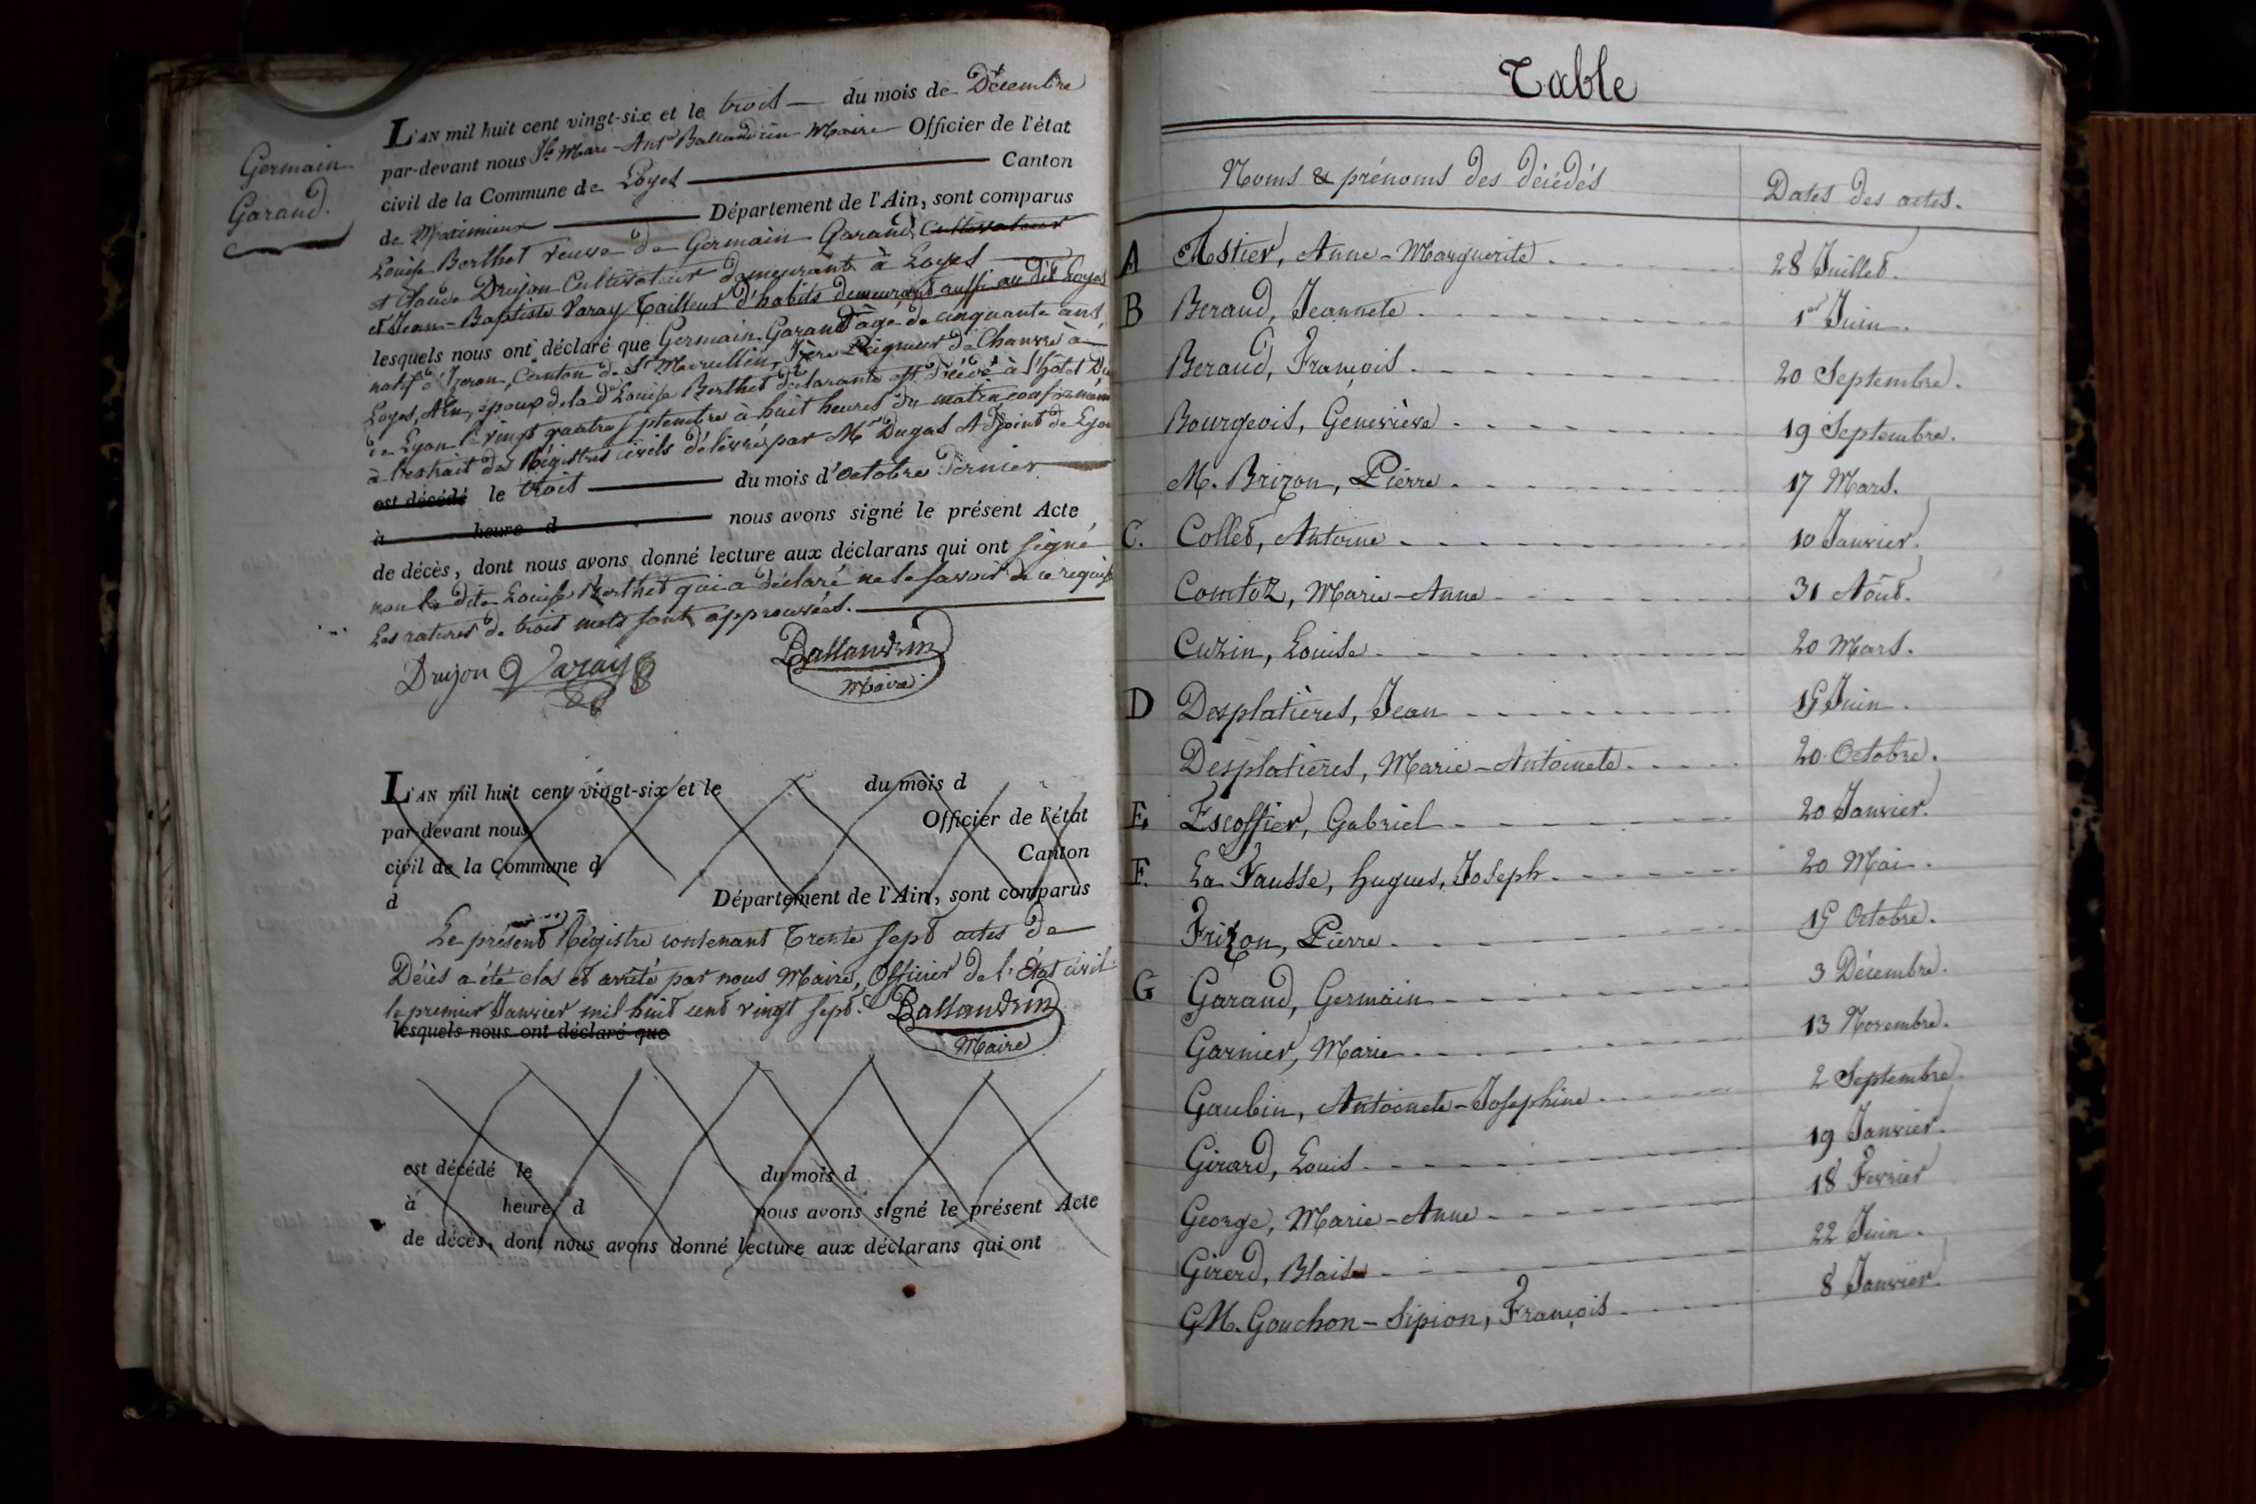 Germain
Garaud.
L'AN mil huit cent vingt-six et le trois du mois de Décembre
par-devant nous Marc-Ant Ballandrin Maire Officier de l'état
civil de la Commune de Loyes Canton
de Meximieux Département de l'Ain, sont comparus
Louise Berthet veuve de Germain Garaud Cultivateur
et Claude Drujon Cultivateur demeurant à Loyes
et Jean-Baptiste Varay Tailleur d'habits demeurant aussi au dit Loyes
lesquels nous ont déclaré que Germain Garaud âgé de cinquante ans,
natif d'Izeron, Canton de St Marcellin, Isère Peigneur de Chanvre à
Loyes, Ain, époux de la de Louise Berthet déclarante est décédé à l'hôtel Du
de Lyon le vingt quatre septembre à huit heures du matin conformém
à l'extrait des Régistres civils délivré par Mr Dugas Adjoint de Lyon
est décédé le trois du mois d'octobre dernier
à heure d nous avons signé le présent Acte
de décès, dont nous avons donné lecture aux déclarans qui ont signé
non la dite Louise Berthet qui a déclaré ne le savoir de ce requise
Les ratures de trois mots sont approuvées.
Drujon Varay Ballandrin
Maire
L'AN mil huit cent vingt-six et le du mois d
par-devant nous Officier de l'état
civil de la Commune d Canton
d Département de l'Ain, sont comparus
Le présent Régistre contenant Trente sept actes de
Décès a été clos et arrêté par nous Maire, Officier de l'État civil
le premier Janvier mil huit cent vingt sept. Ballandrin
lesquels nous ont déclaré que
Maire
est décédé le du mois d
à heure d nous avons signé le présent Acte
de décès, dont nous avons donné lecture aux déclarans qui ont
Table
Noms & prénoms des décédés Dates des actes.
A Astier, Anne-Marguerite 28 Juillet.
B Beraud, Jeannete 1er Juin.
Beraud, François 20 Septembre.
Bourgeois, Geneviève 19 Septembre.
M. Brizon, Pierre 17 Mars.
C. Collet, Antoine 10 Janvier.
Comtoz, Marie-Anne 31 Août.
Cuzin, Louise 20 Mars.
D Desplatières, Jean 19 Juin.
Desplatières, Marie-Antoinete 20 Octobre.
E. Escoffier, Gabriel 20 Janvier.
F. La Fausse, hugues, Joseph 20 Mai.
Frizon, Pierre 19 Octobre.
G Garaud, Germain 3 Décembre.
Garnier, Marie 13 Novembre.
Gaubin, Antoinete-Josephine 2 Septembre
Girard, Louis 19 Janvier.
George, Marie-Anne 18 Fevrier
Girerd, Blaise 22 Juin.
GM. Gouchon-Sipion, François 8 Janvier.